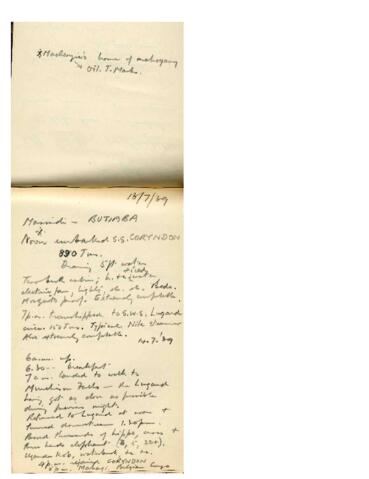 * Mackenzie's home of mahogany
Oil. T. Marks.
13/7/39
Masindi - BUTIABA
Noon embarked S.S. CORYNDON
890 Tons.
Drawing 5ft water
Two berth cabin; h. +
electric fan, lights, etc. etc. Beds.
Mosquito proof. Extremely comfortable.
7p.m. transhipped to S.W.S. Lugard
150 Tons. Typical Nile steamer
Also extremely comfortable.
14.7.39
6 a.m. up.
6.30 - breakfast
7 a.m. landed to walk to
Murchison Falls - the Lugard
having got as close as possible
during previous night.
Returned to Lugard at noon +
turned downstream 1.30p.m.
Passed thousands of hippo, crocs +
three herds elephant (8, 5, 22+),
Uganda Kob, waterbuck, etc. etc.
4p.m. rejoined CORYNDON
8p.m. Mahagi, Belgian Congo